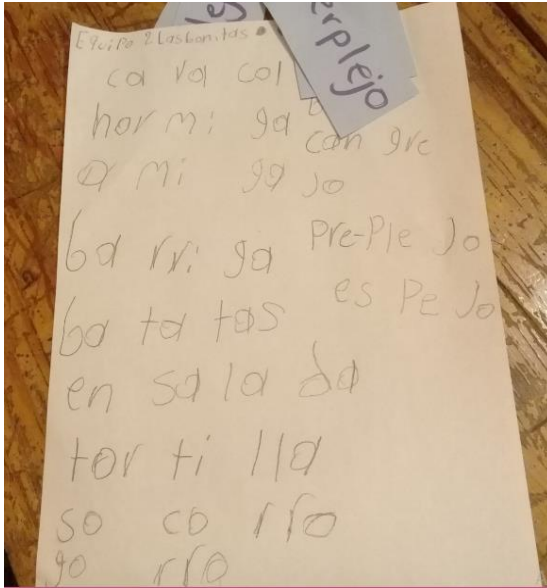 erplejo
Equipo 2 Las bonitas
ca ra col
hor mi ga
a mi ga
ba rri ga
ba ta tas
en sa la da
tor ti lla
so co rro
go rro
can gre
jo
Pre-Ple Jo
es Pe Jo